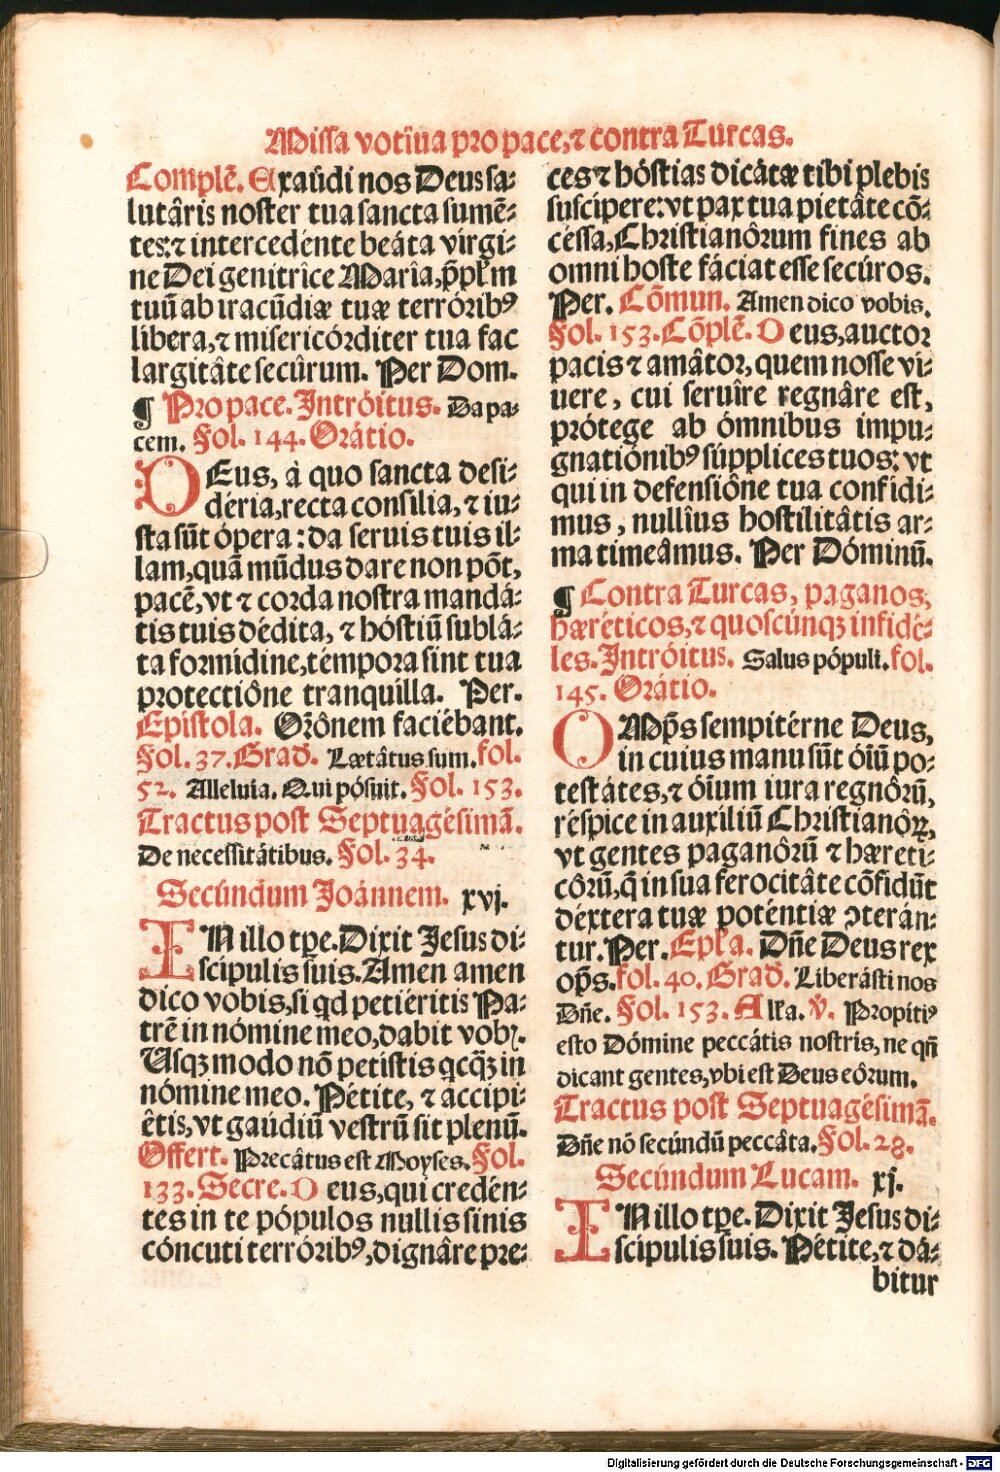 Missa votîua pro pace, ⁊ contra Turcas.
Complē. Exaûdi nos Deus sa⸗
lutâris noster tua sancta sumē⸗
tes:⁊ intercedénte beáta vírgi⸗
ne Dei genitrîce Marîa, p̄pl̄m
tuū ab iracūdiæ tuæ terrórib⁹
líbera,⁊ misericórditer tua fac
largitâte secûrum. Per Dom.
¶ Pro pace. Intróitus. Da pa⸗
cem. Fol. 144. Orátio.
DEus, à quo sancta desi⸗
déria, recta consília, ⁊ iu⸗
sta sūt ópera : da seruis tuis il⸗
lam, quā mūdus dare non pōt,
pacē, vt ⁊ corda nostra mandá⸗
tis tuis dédita, ⁊ hóstiū sublá⸗
ta formídine, témpora sint tua
protectiône tranquílla. Per.
Epístola. Or̄ônem faciébant.
Fol. 37. Grad̄. Lætâtus sum. fol.
52. Alleluia. Qui pósuit. Fol. 153.
Tractus post Septuagésimā.
De necessitátibus. Fol. 34.
Secúndum Joánnem. xvj.
IN illo tp̄e. Dixit Jesus di⸗
scípulis suis. Amen amen
dico vobis, si qd petiéritis Pa⸗
trē in nómine meo, dabit vobꝭ.
Usqꝫ modo nō petistis qcq̄ꝫ in
nómine meo. Pétite, ⁊ accipi⸗
êtis, vt gaúdiū vestrū sit plenū.
Offert. Precâtus est Moyses. Fol.
133. Secre. Deus, qui credén⸗
tes in te pópulos nullis sinis
cóncuti terrórib⁹, dignâre pre⸗
ces ⁊ hóstias dicátæ tibi plebis
suscípere: vt pax tua pietâte cō⸗
céssa, Christianôrum fines ab
omni hoste fáciat esse secúros.
Per. Cōmun. Amen dico vobis.
Fol. 153. Cōplē. Deus, auctor
pacis ⁊ amâtor, quem nosse ví⸗
uere, cui seruîre regnâre est,
prótege ab ómnibus impu⸗
gnatiónib⁹ súpplices tuos: vt
qui in defensiône tua confídi⸗
mus, nullîus hostilitâtis ar⸗
ma timeâmus. Per Dóminū.
¶ Contra Turcas, paganos,
hæréticos, ⁊ quoscúnqꝫ infidê⸗
les. Intróitus. Salus pópuli. fol.
145. Orátio.
OMp̄s sempitérne Deus,
in cuius manu sūt óīū po⸗
testátes, ⁊ óīum iura regnôrū,
réspice in auxíliū Christianôꝝ,
vt gentes paganôrū ⁊ hæreti⸗
côrū, q̄ in sua ferocitâte cōfidūt
déxtera tuæ poténtiæ ↄterán⸗
tur. Per. Epl̄a. Dn̄e Deus rex
op̄s. fol. 40. Grad̄. Liberásti nos
Dn̄e. Fol. 153. All̄a. ℣. Propíti⁹
esto Dómine peccátis nostris, ne qn̄
dicant gentes, vbi est Deus eôrum.
Tractus post Septuagésimā.
Dn̄e nō secúndū peccâta. Fol. 28.
Secúndum Lucam. xj.
IN illo tp̄e. Dixit Jesus di⸗
scípulis suis. Pétite, ⁊ dá⸗
bitur
Digitalisierung gefördert durch die Deutsche Forschungsgemeinschaft - DFG